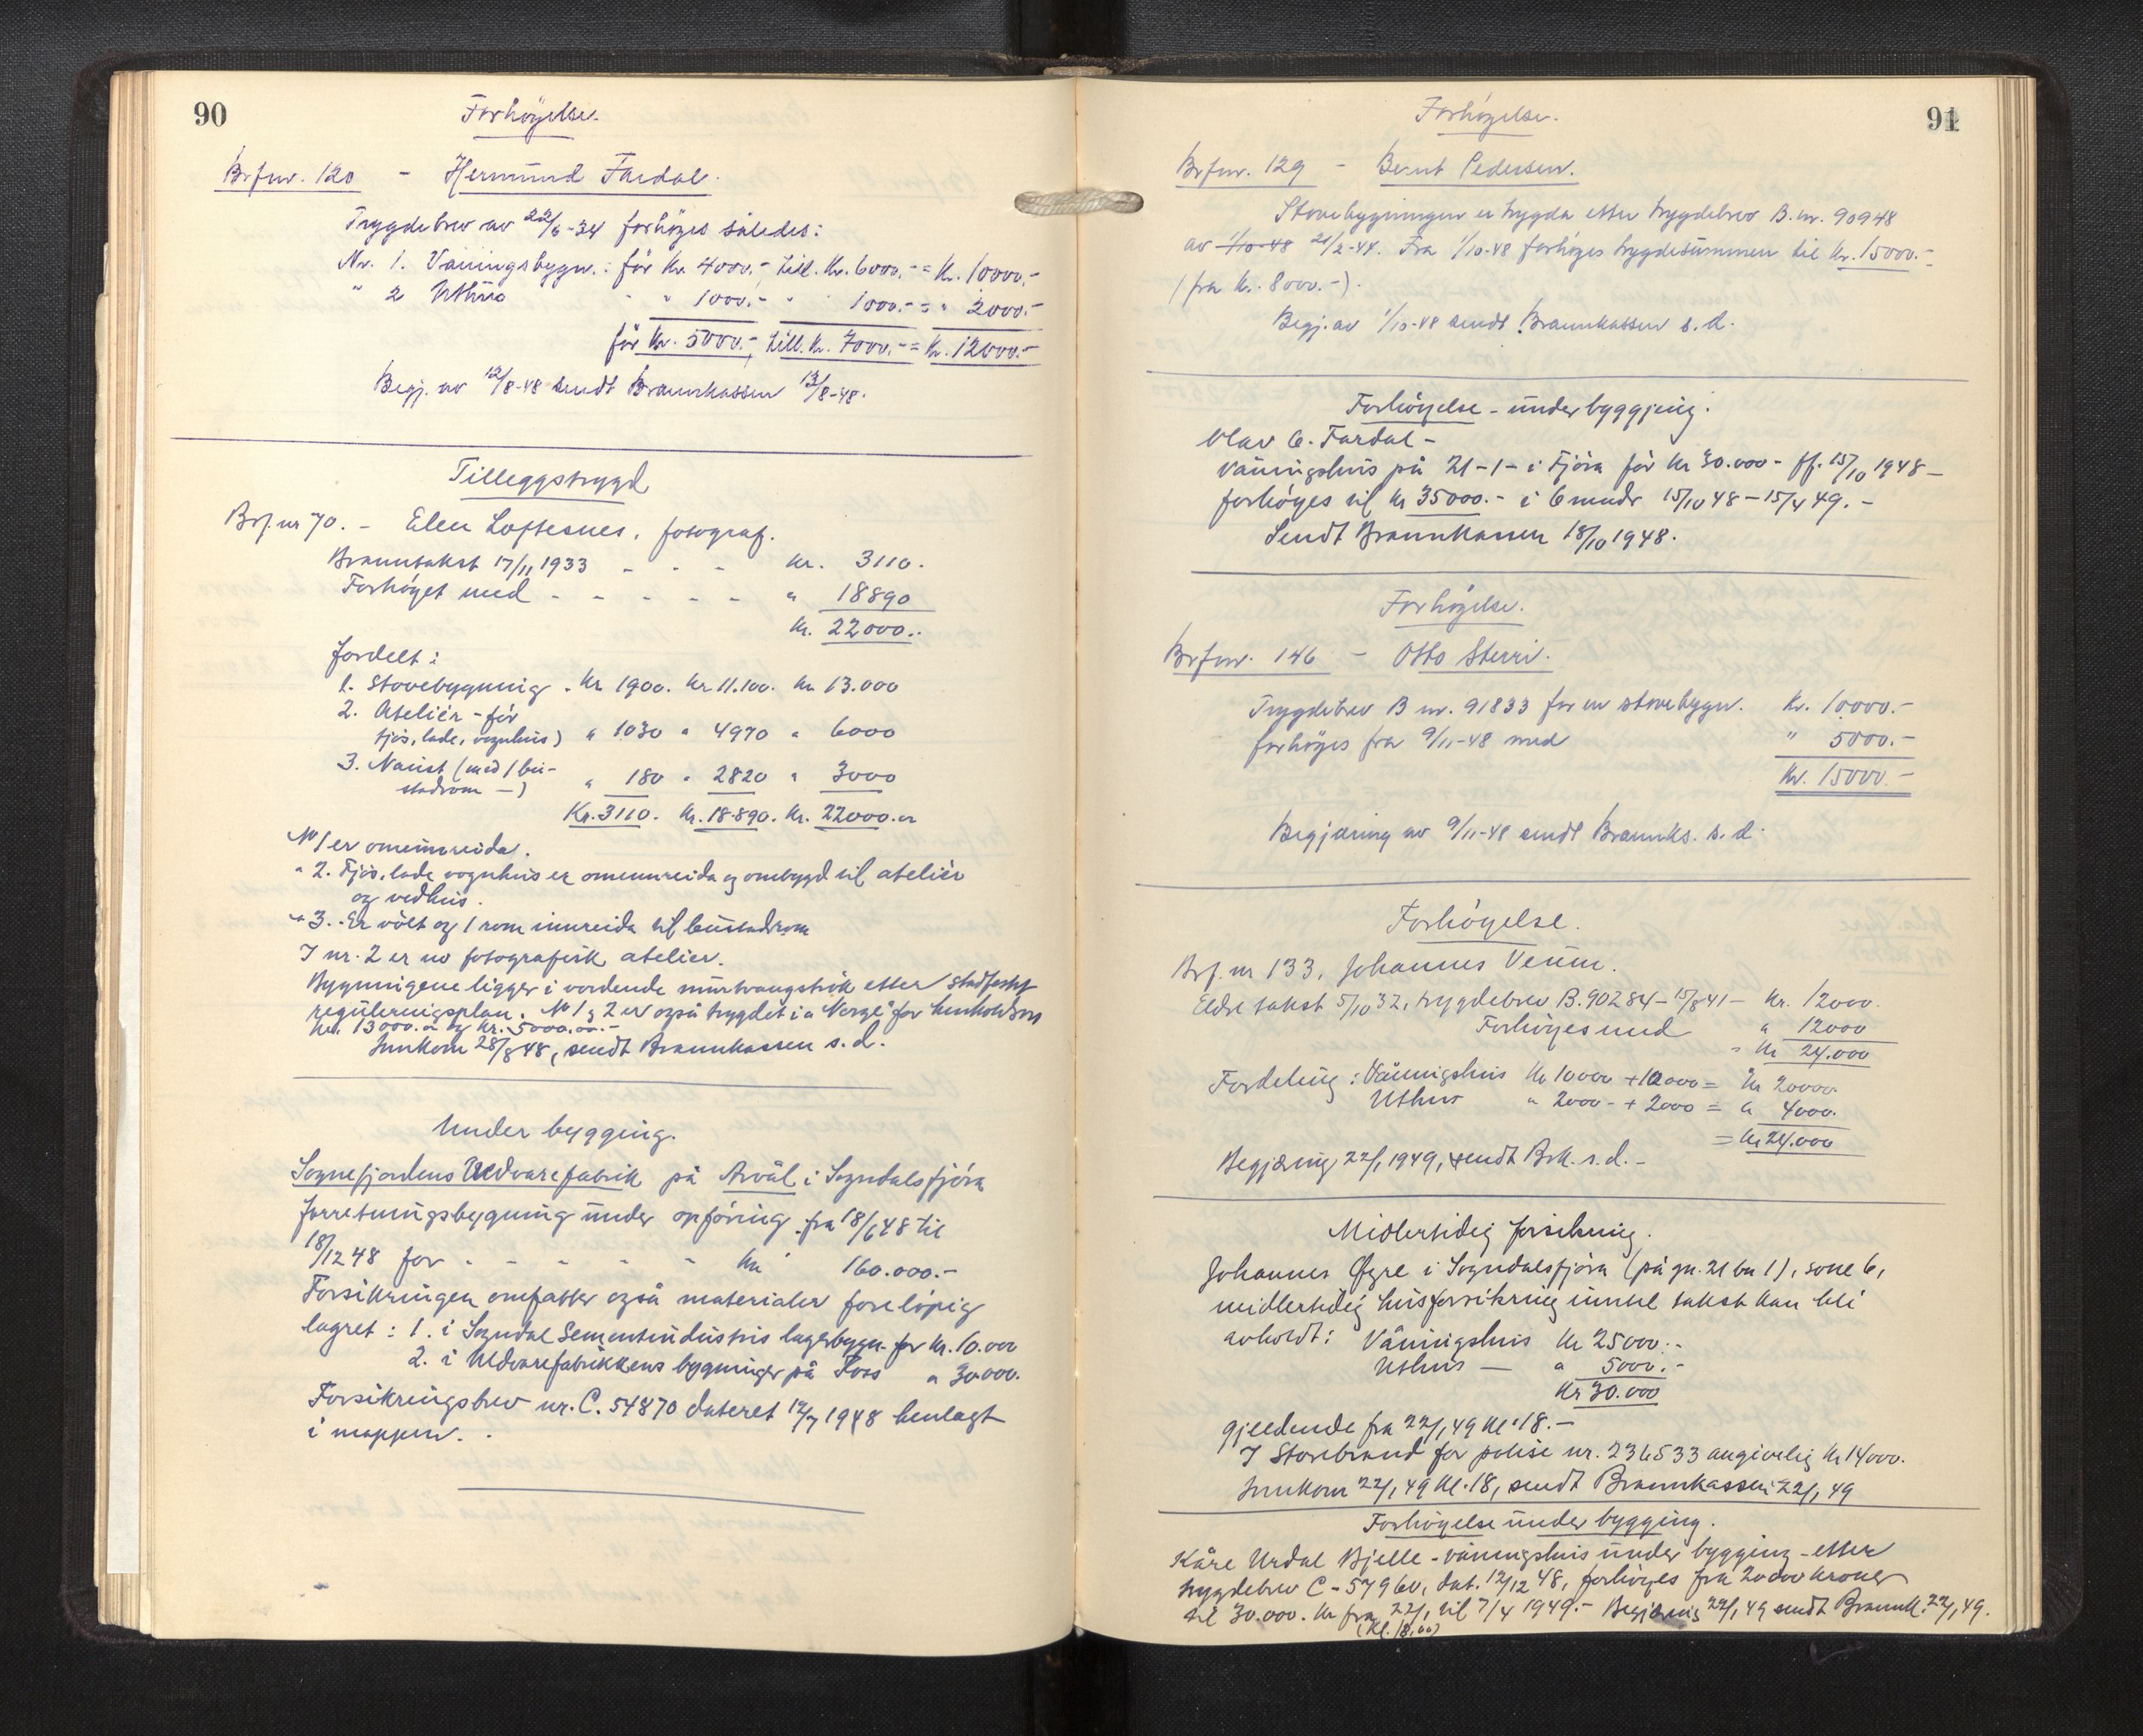 90
Forhøyelse.
Brfnr. 120 - Hermund Fardal.
Trygdebrev av 22/6-34 forhøyes således:
Nr. 1. Våningsbygn.: før Kr. 4000.- till. Kr. 6000.- = Kr. 10000.-
" 2 Uthus " " 1000.- " 1000.- = " 2000.-
før Kr. 5000.-, till. Kr. 7000.- = Kr. 12000.-
Begj. av 12/8-48 sendt Brannkassen 13/8-48.
Tilleggstrygd
Brf. nr 70. - Elen Loftesnes, fotograf.
Branntakst 17/11 1933 - - - kr. 3110.
Forhøyet med - - - - - " 18890
Kr. 22000..
fordelt:
1. Stovebygning. Kr 1900. Kr 11.100. Kr 13.000
2. Ateliér - før
fjøs, lade, vognhus) " 1030 " 4970 " 6000
3. Naust (med 1 bu-
stadrom -) " 180 " 2820 " 3000
Kr. 3110. Kr. 18.890. Kr. 22000.oo
No 1 er ominnreida.
" 2. Fjøs, lade vognhus er ominnreida og ombygd til atelier
og vedhus.
" 3. Er vølt og 1 rom innreida til bustadrom
I nr. 2 er no fotografisk atelier.
Bygningene ligger i vordende murtvangstrøk etter stadfest
reguleringsplan. No 1 og 2 er også trygdet i "Norge" for henholdsvis
kr. 13000.oo og kr. 5000.oo.-
Innkom 28/8 48, sendt Brannkassen s.d.
Under bygging.
Sognefjordens Uldvarefabrik på Arvål i Sogndalsfjøra
forretningsbygning under opføring fra 18/6 48 til
18/12 48 for - - - - - kr 160.000.-
Forsikringen omfatter også materialer foreløpig
lagret: 1. i Sogndal Sementindustris lagerbygn. for kr. 10.000
2. i Uldvarefabrikkens bygninger på Foss " 30000.
Forsikringsbrev nr. C. 54870 dateret 12/7 1948 henlagt
i mappen.
91
Forhøyelse.
Brfnr. 129 - Bernt Pedersen.
Stovebygningen er trygda etter trygdebrev B. nr. 90948
av 1/10-48 21/2-44. Fra 1/10-48 forhøyes trygdesummen til Kr. 15000.-
(fra kr. 8000.-).
Begj. av 1/10-48 sendt Brannkassen s.d.
Forhøyelse - under byggjeing.
Olav O. Fardal -
våningshus på 21-1- i Fjøra før kr 30.000- ff. 15/10 1948 -
forhøyes til kr 35000.- i 6 mndr 15/10 48 - 15/4 49. -
Sendt Brannkassen 18/10 1948.
Forhøyelse.
Brfnr. 146 - Otto Sterri.
Trygdebrev B nr. 91833 for en stovebygn. Kr. 10000.-
forhøyes fra 9/11-48 med " 5000.-
Kr. 15000.-
Begjæring av 9/11-48 sendt Brannks. s.d.
Forhøyelse.
Brf. nr 133, Johannes Venum.
Eldre takst 5/10 32, trygdebrev B. 90284 - 15/8 41 - Kr. 12000.
Forhøyes med " 12000
= Kr 24.000
Fordeling: Våningshus Kr 10000 + 10000 = Kr 20000.
Uthus " 2000 - + 2000 = " 4000.
= Kr 24.000
Begjæring 22/1 1949, sendt Brk. s.d. -
Midlertidig forsikring.
Johannes Øyre i Sogndalsfjøra (på gn. 21 bn 1), sone 6,
midlertidig husforsikring inntil takst kan bli
avholdt: Våningshus Kr 25000.-
Uthus - " 5000.-
Kr 30.000
gjeldende fra 22/1 49 kl. 18.-
I Storebrand for polise nr. 236533 angivelig kr 14000.
Innkom 22/1 49 kl. 18, sendt Brannkassen 22/1 49
Forhøyelse under bygging.
Kåre Urdal Bjelle - våningshus under bygging - etter
trygdebrev C - 57960, dat. 12/12 48, forhøyes fra 20000 kroner
til 30.000. kr fra 22/1 til 7/4 1949.- Begjæring 22/1 49 sendt Brannk. 22/1 49.
(kl. 18,oo)